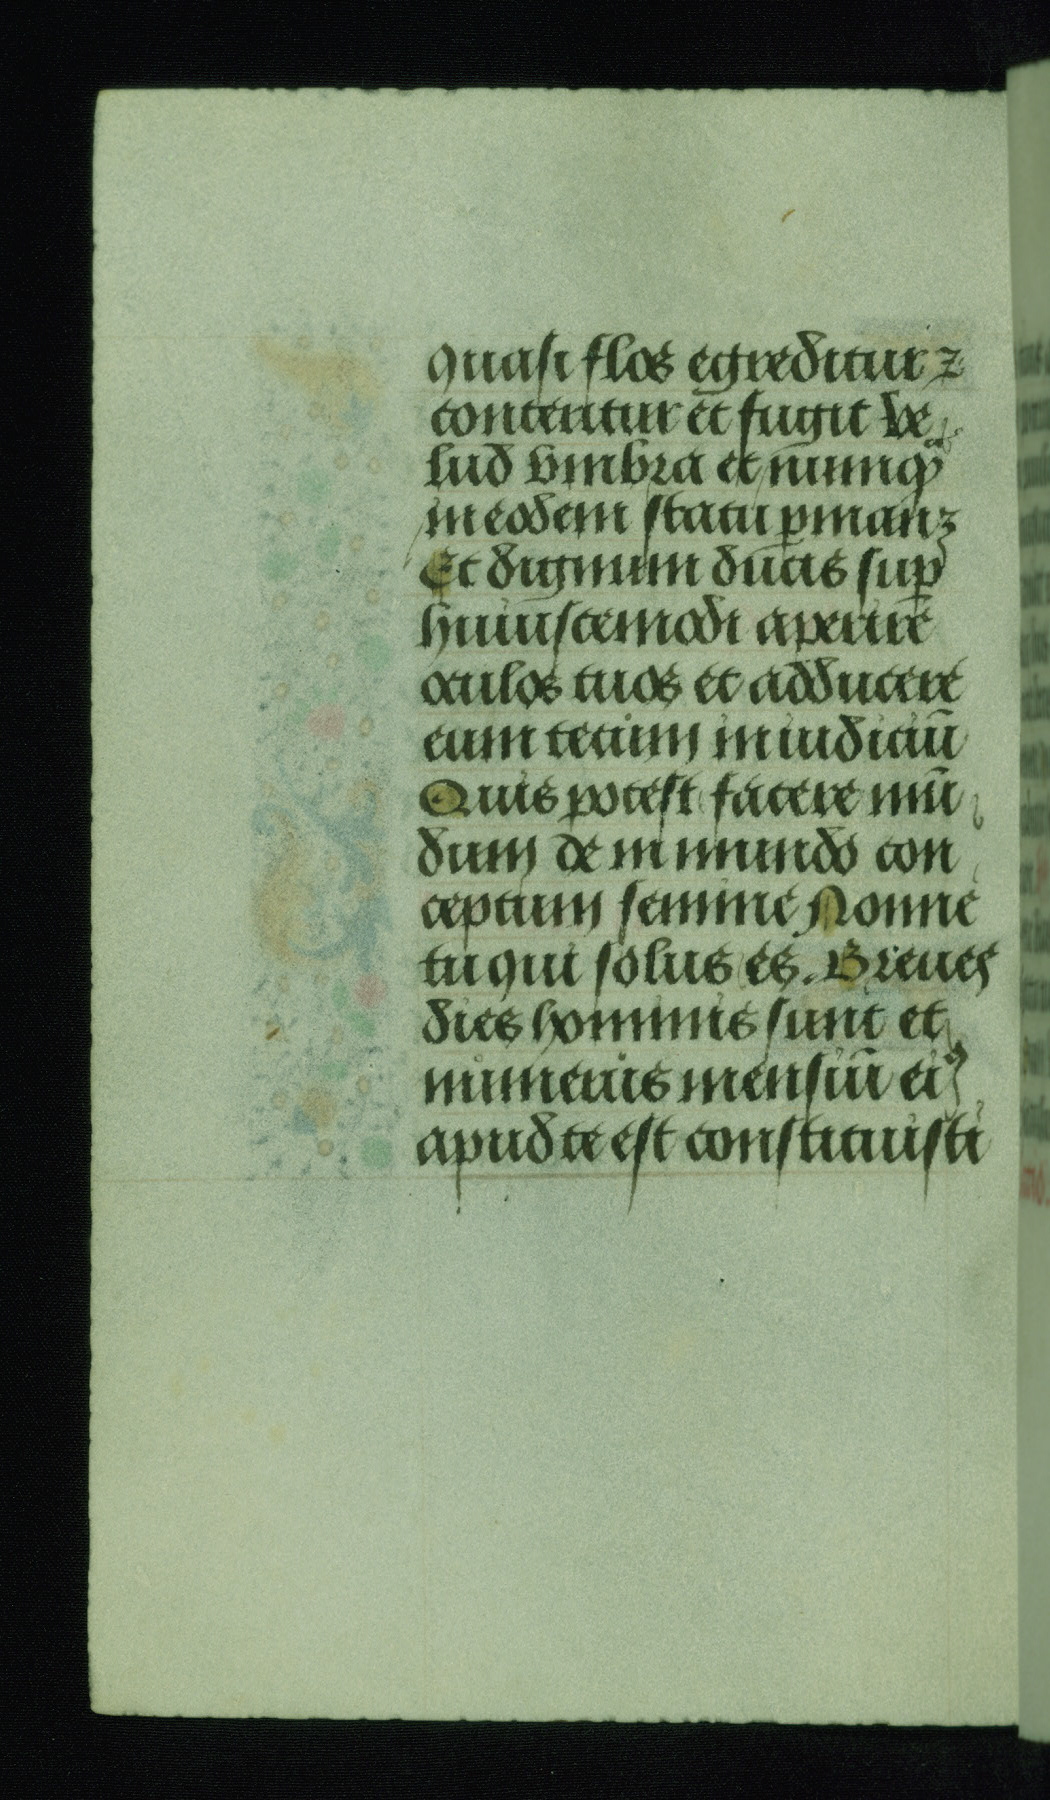 quasi flos egreditur ⁊
conteritur et fugit ve
lud vmbra et nūmqᷓ
in eodem statu ꝑmanꝫ
Et dignum ducis suꝑ
huiuscemodi aperire
oculos tuos et adducere
eum tecum in iudiciū
Quis potest facere mū
dum de inmundo con
ceptum semine Nonne
tu qui solus es. Breues
dies hominis sunt et
numerus mensiū eiꝰ
apud te est constituisti